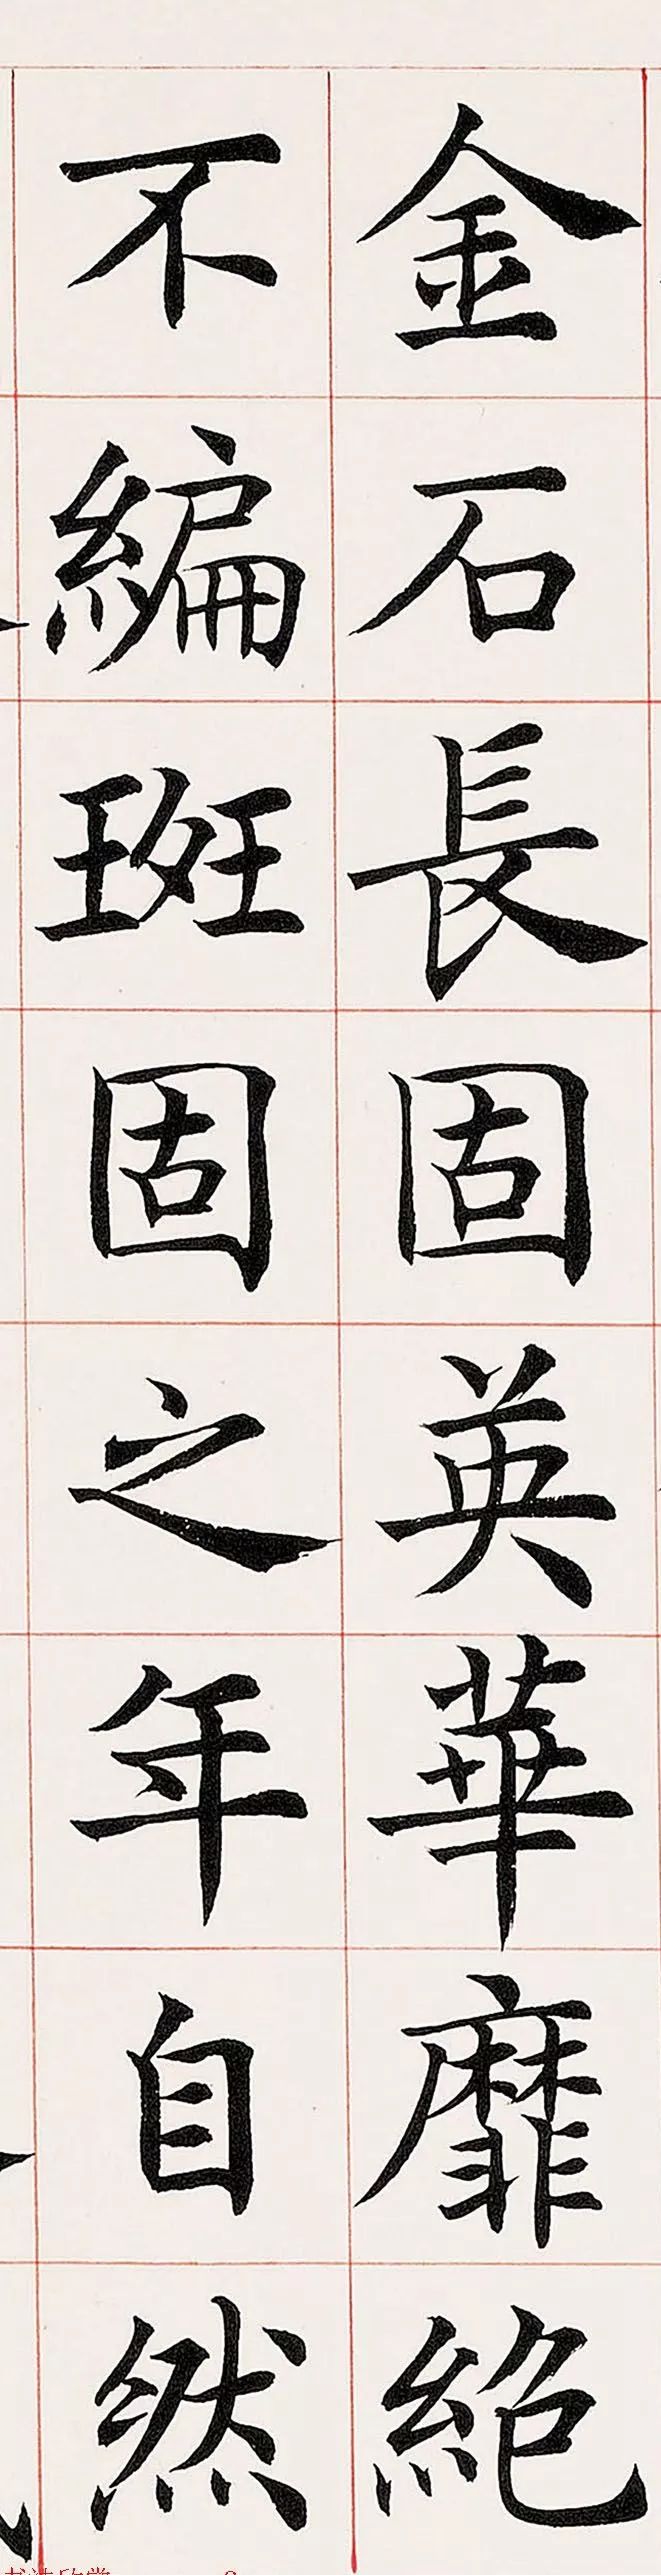 金石長固英華靡絶
不編斑固之年自然
书法欣赏